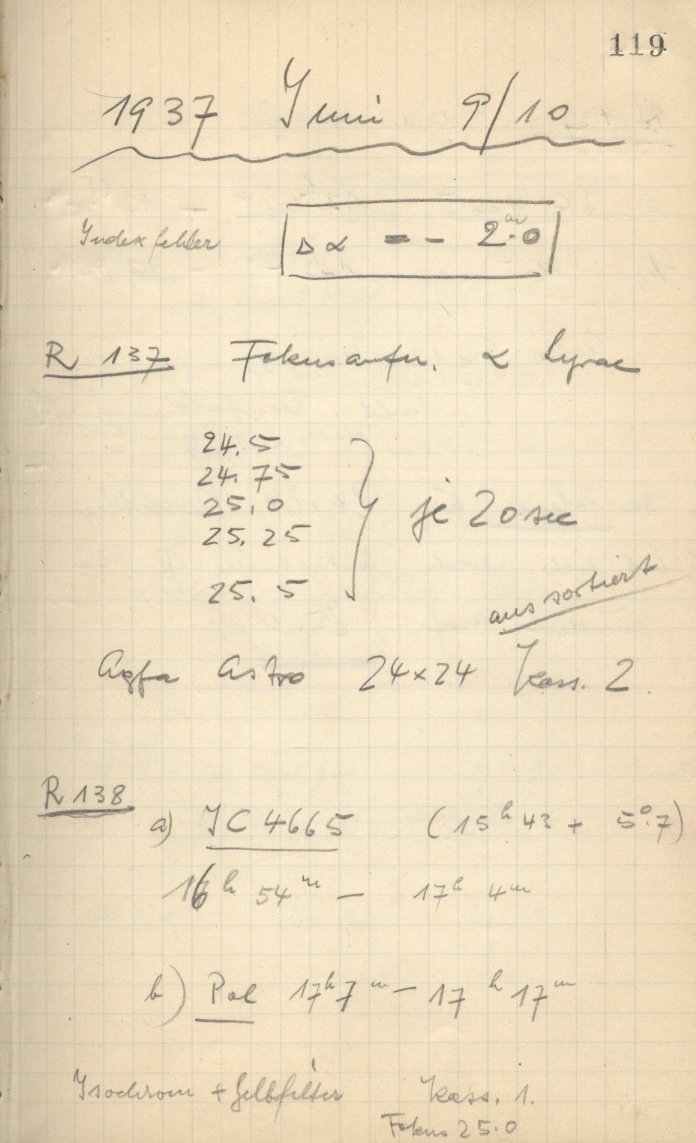 119
1937 Juni 9/10
Indexfehler Δα = - 2ᵐ.0
R 137 Fokusaufn. α Lyrae
24.5
24.75
25.0
25.25
25.5
je 20 sec
aussortiert
Agfa Astro 24×24 Kass. 2.
R 138
a) IC 4665 (15ʰ 43 + 5°.7)
16ʰ 54ᵐ — 17ʰ 4ᵐ
b) Pol 17ʰ 7ᵐ — 17ʰ 17ᵐ
Isochrom + Gelbfilter Kass. 1.
Fokus 25.0